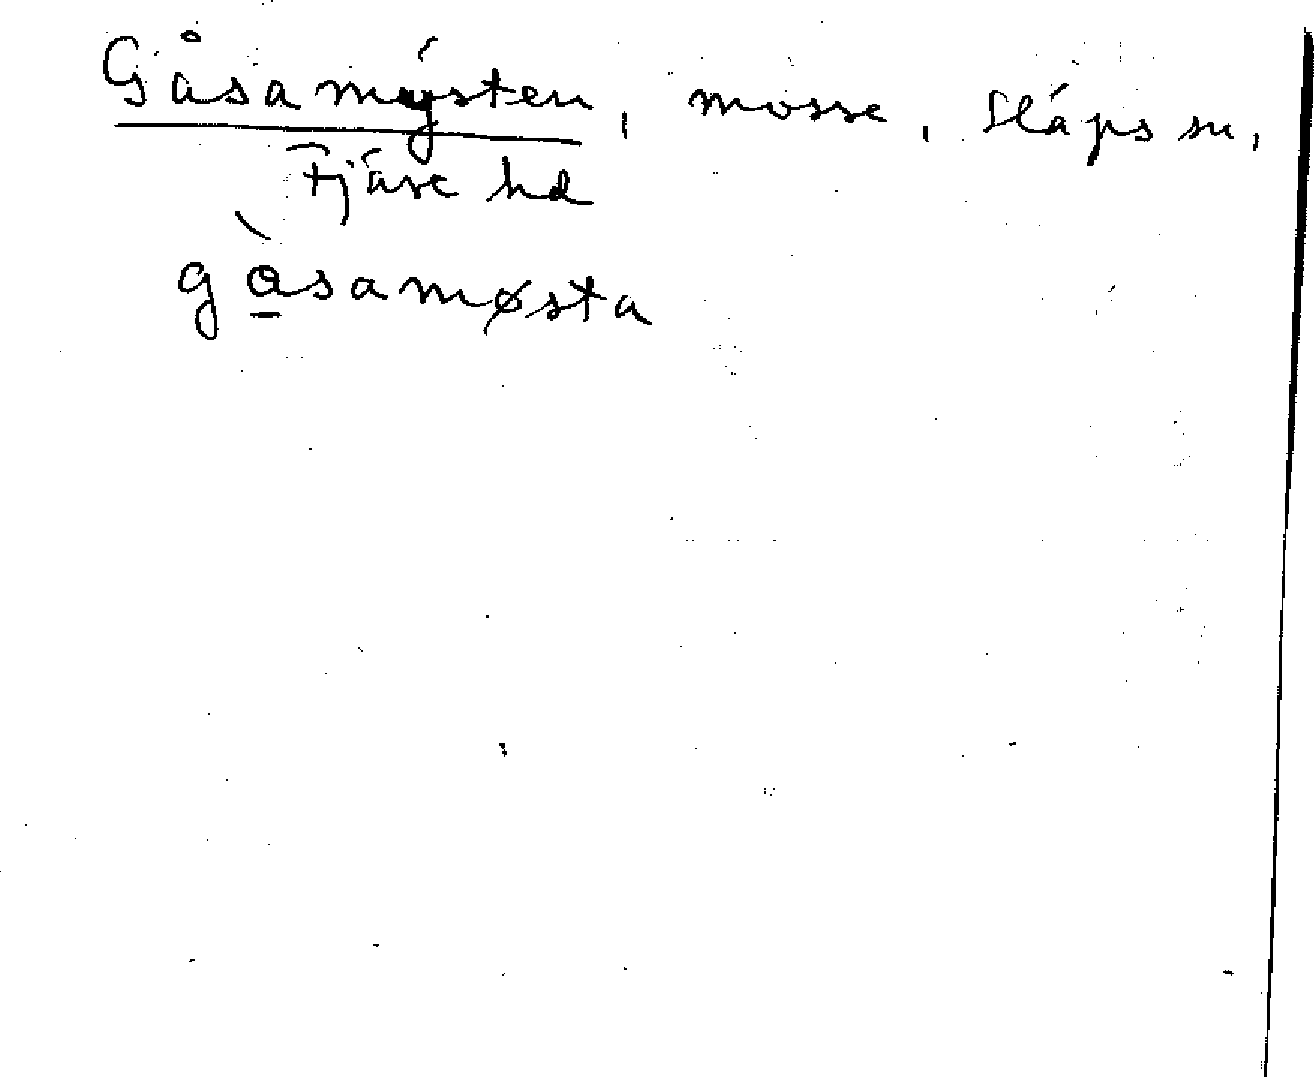 Gåsamýsten, mosse, Släps sn,
Fjäre hd
gàsamøsta